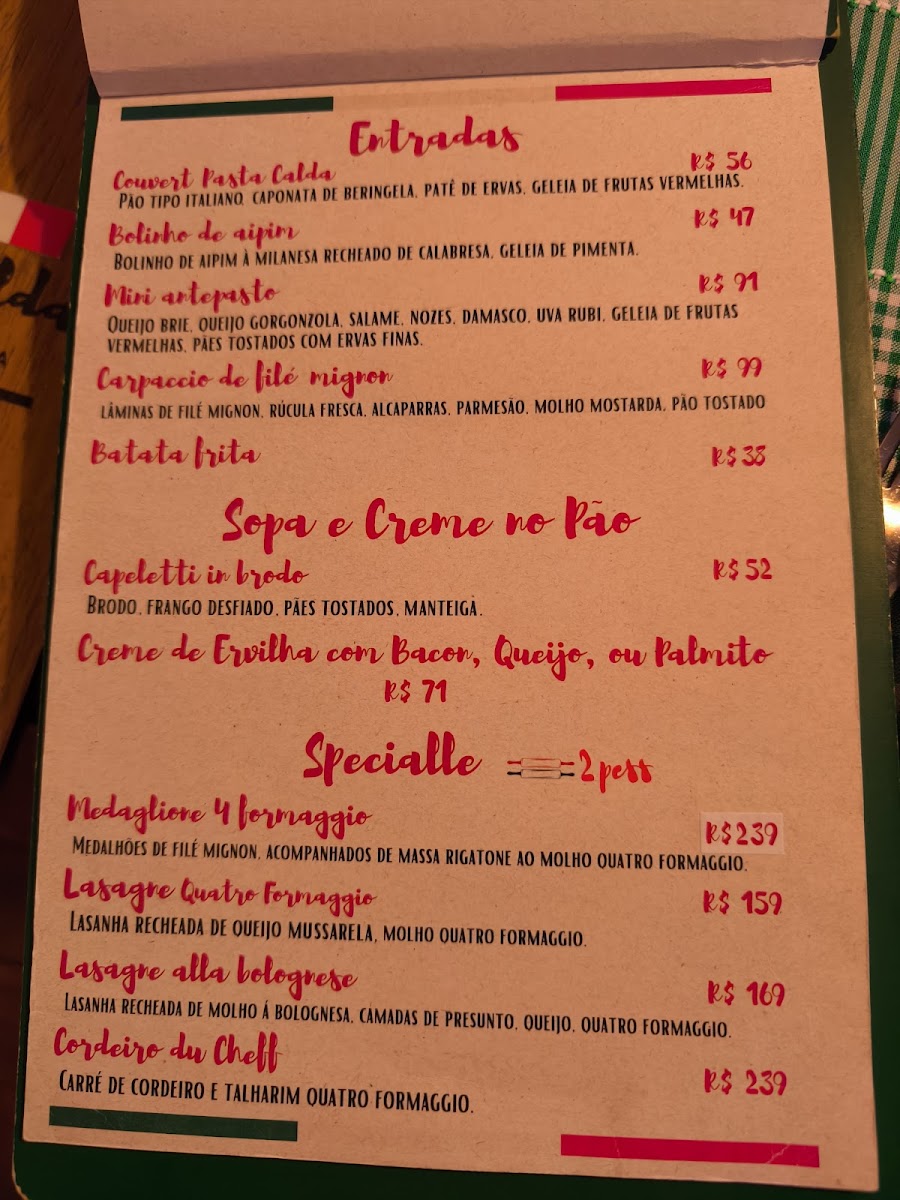 Entradas
Couvert Pasta Calda R$ 56
PÃO TIPO ITALIANO, CAPONATA DE BERINGELA, PATÊ DE ERVAS, GELEIA DE FRUTAS VERMELHAS.
Bolinho de aipim R$ 47
BOLINHO DE AIPIM À MILANESA RECHEADO DE CALABRESA, GELEIA DE PIMENTA.
Mini antepasto R$ 91
QUEIJO BRIE, QUEIJO GORGONZOLA, SALAME, NOZES, DAMASCO, UVA RUBI, GELEIA DE FRUTAS
VERMELHAS, PÃES TOSTADOS COM ERVAS FINAS.
Carpaccio de filé mignon R$ 99
LÂMINAS DE FILÉ MIGNON, RÚCULA FRESCA, ALCAPARRAS, PARMESÃO, MOLHO MOSTARDA, PÃO TOSTADO
Batata frita R$ 38
Sopa e Creme no Pão
Capeletti in brodo R$ 52
BRODO, FRANGO DESFIADO, PÃES TOSTADOS, MANTEIGA.
Creme de Ervilha com Bacon, Queijo, ou Palmito
R$ 71
Specialle 2 pess
Medaglione 4 formaggio R$ 239
MEDALHÕES DE FILÉ MIGNON, ACOMPANHADOS DE MASSA RIGATONE AO MOLHO QUATRO FORMAGGIO.
Lasagne Quatro Formaggio R$ 159
LASANHA RECHEADA DE QUEIJO MUSSARELA, MOLHO QUATRO FORMAGGIO.
Lasagne alla bolognese R$ 169
LASANHA RECHEADA DE MOLHO Á BOLOGNESA, CAMADAS DE PRESUNTO, QUEIJO, QUATRO FORMAGGIO.
Cordeiro du Cheff R$ 239
CARRÉ DE CORDEIRO E TALHARIM QUATRO FORMAGGIO.